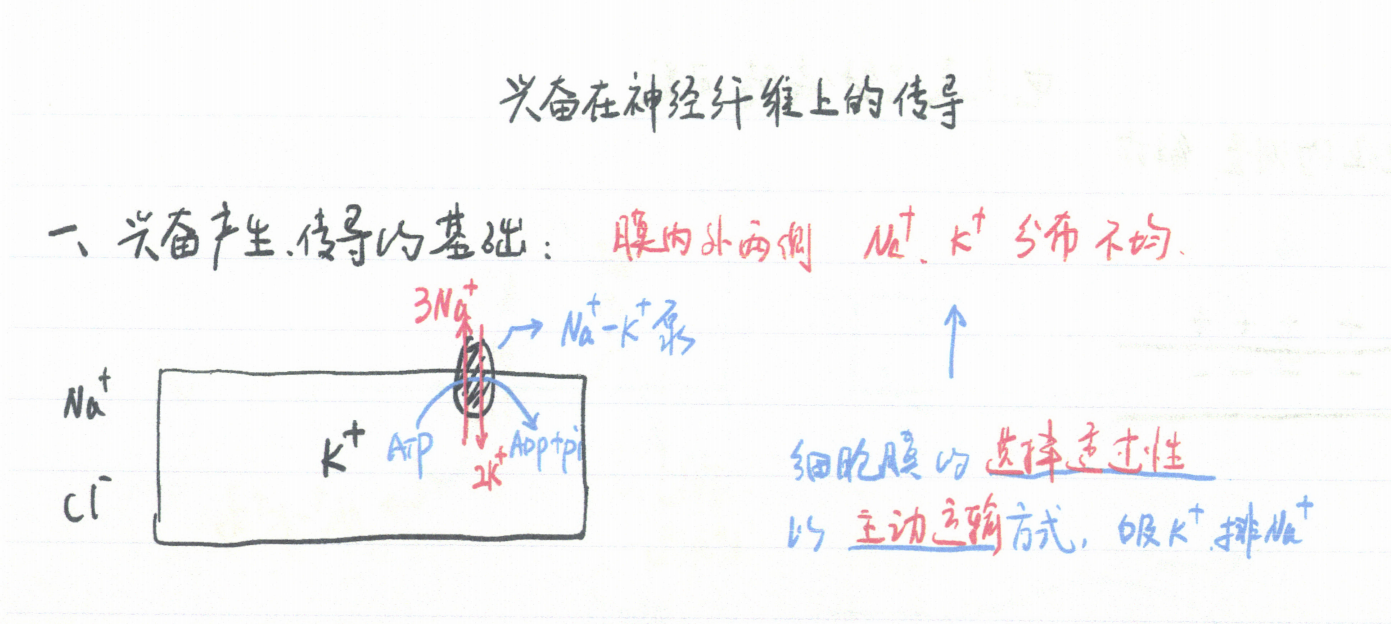 兴奋在神经纤维上的传导
一、兴奋产生、传导的基础：膜内外两侧 Na⁺、K⁺ 分布不均.
3Na⁺
Na⁺-K⁺泵
Na⁺
K⁺
ATP
ADP+pi
2K⁺
Cl⁻
细胞膜的选择透过性
以主动运输方式，吸K⁺排Na⁺